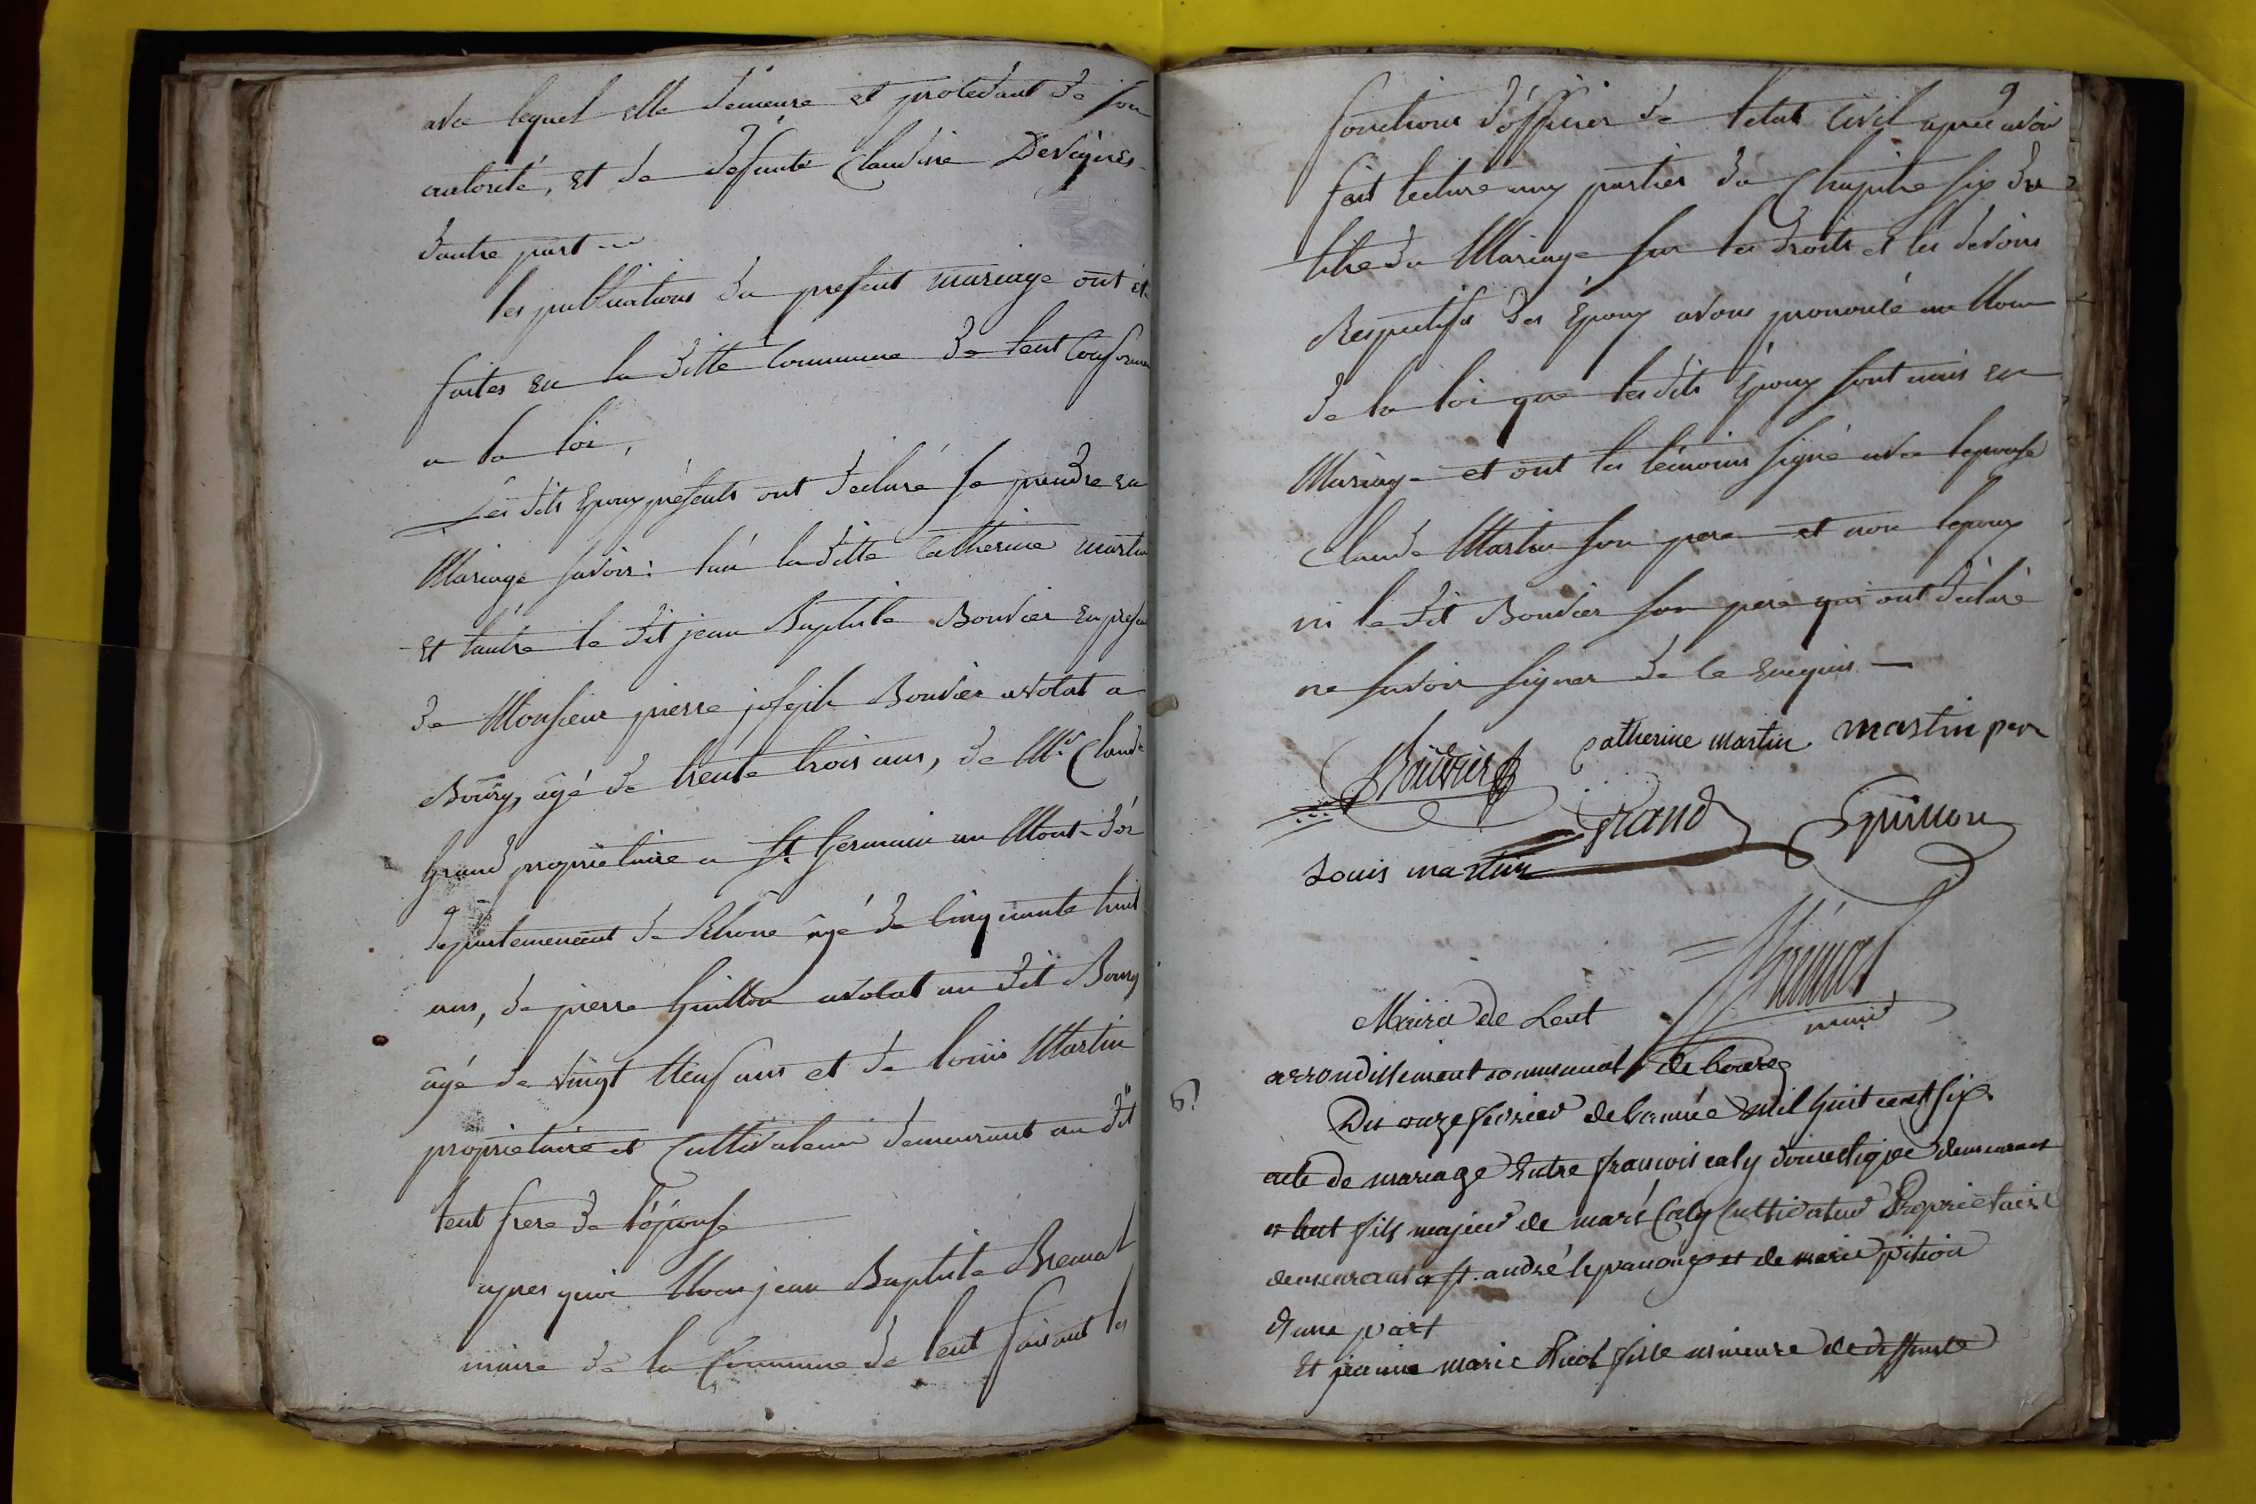 avec lequel elle demeure et procedant de son
autorité, et de defunte Claudine Devignes
d'autre part
les publications du present mariage ont été
faites en la ditte Commune de Lent Conformement
a la loi,
Les dits Epoux présents ont déclaré se prendre en
Mariage savoir: l'un la ditte Catherine martin
Et l'autre le dit jean Baptiste Bouvier en presence
de Monsieur pierre joseph Bouvier avocat a
Bourg, âgé de trente trois ans, de Mr. Claude
Grand propriétaire a St. Germain au Mont-d'or
departemement de Rhône âgé de Cinquante huit
ans, de pierre Guillon avocat au dit Bourg
âgé de vingt Neuf ans et de Louis Martin
propriétaire et Cultivateur demeurant au dit
Lent frere de l'épouse
apres quoi Nous jean Baptiste
maire de la Commune de Lent faisant les
9
fonctions d'officier de l'etat Civil apres avoir
fait lecture aux parties du Chapitre six du
titre du Mariage sur les droits et les devoirs
Respectifs des Epoux avons prononcé au Nom
de la loi que les dits Epoux sont unis en
Mariage et ont les témoins signé avec l'epouse
Claude Martin son pere et non l'epoux
ni le dit Bouvier son pere qui ont déclaré
ne savoir signer de ce Enquis
Bouvier Catherine martin martin pere
Grand Guillon
Louis martin
maire
Mairie de Lent
arrondissement communal de bourg
6
Du onze fevrier de l'année mil huit cent six
acte de mariage Entre francois caly domestique demeurant
a lent fils majeur de marie Caly Cultivateur Proprietaire
demeurant a st. andré le panoux et de marie pition
d'une part
Et jeanne marie fille mineure de deffunte